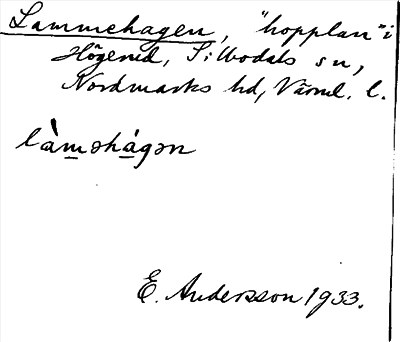 Lammehagen, "hopplan" i
Högerud, Sillbodals sn,
Nordmarks hd, Värml. l.
làməhágən
E. Andersson 1933.